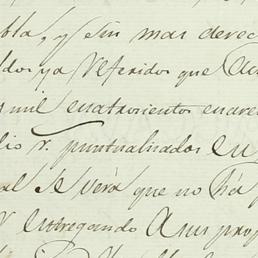 bla, y sin mas derec
dos ya referidos que au
s mil cuatrocientos cuare
lio r. puntualizados en
al se verá que no há p
y entregando a mis prop